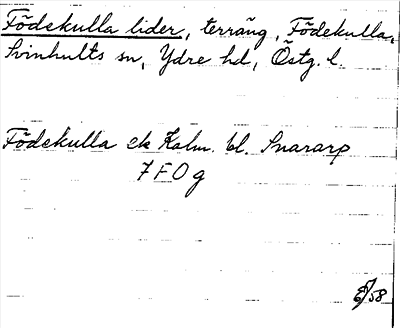 Födekulla lider, terräng, Födekulla,
Svinhults sn, Ydre hd, Östg. l.
Födekulla ek Kalm. bl. Snararp
7F0g
/58